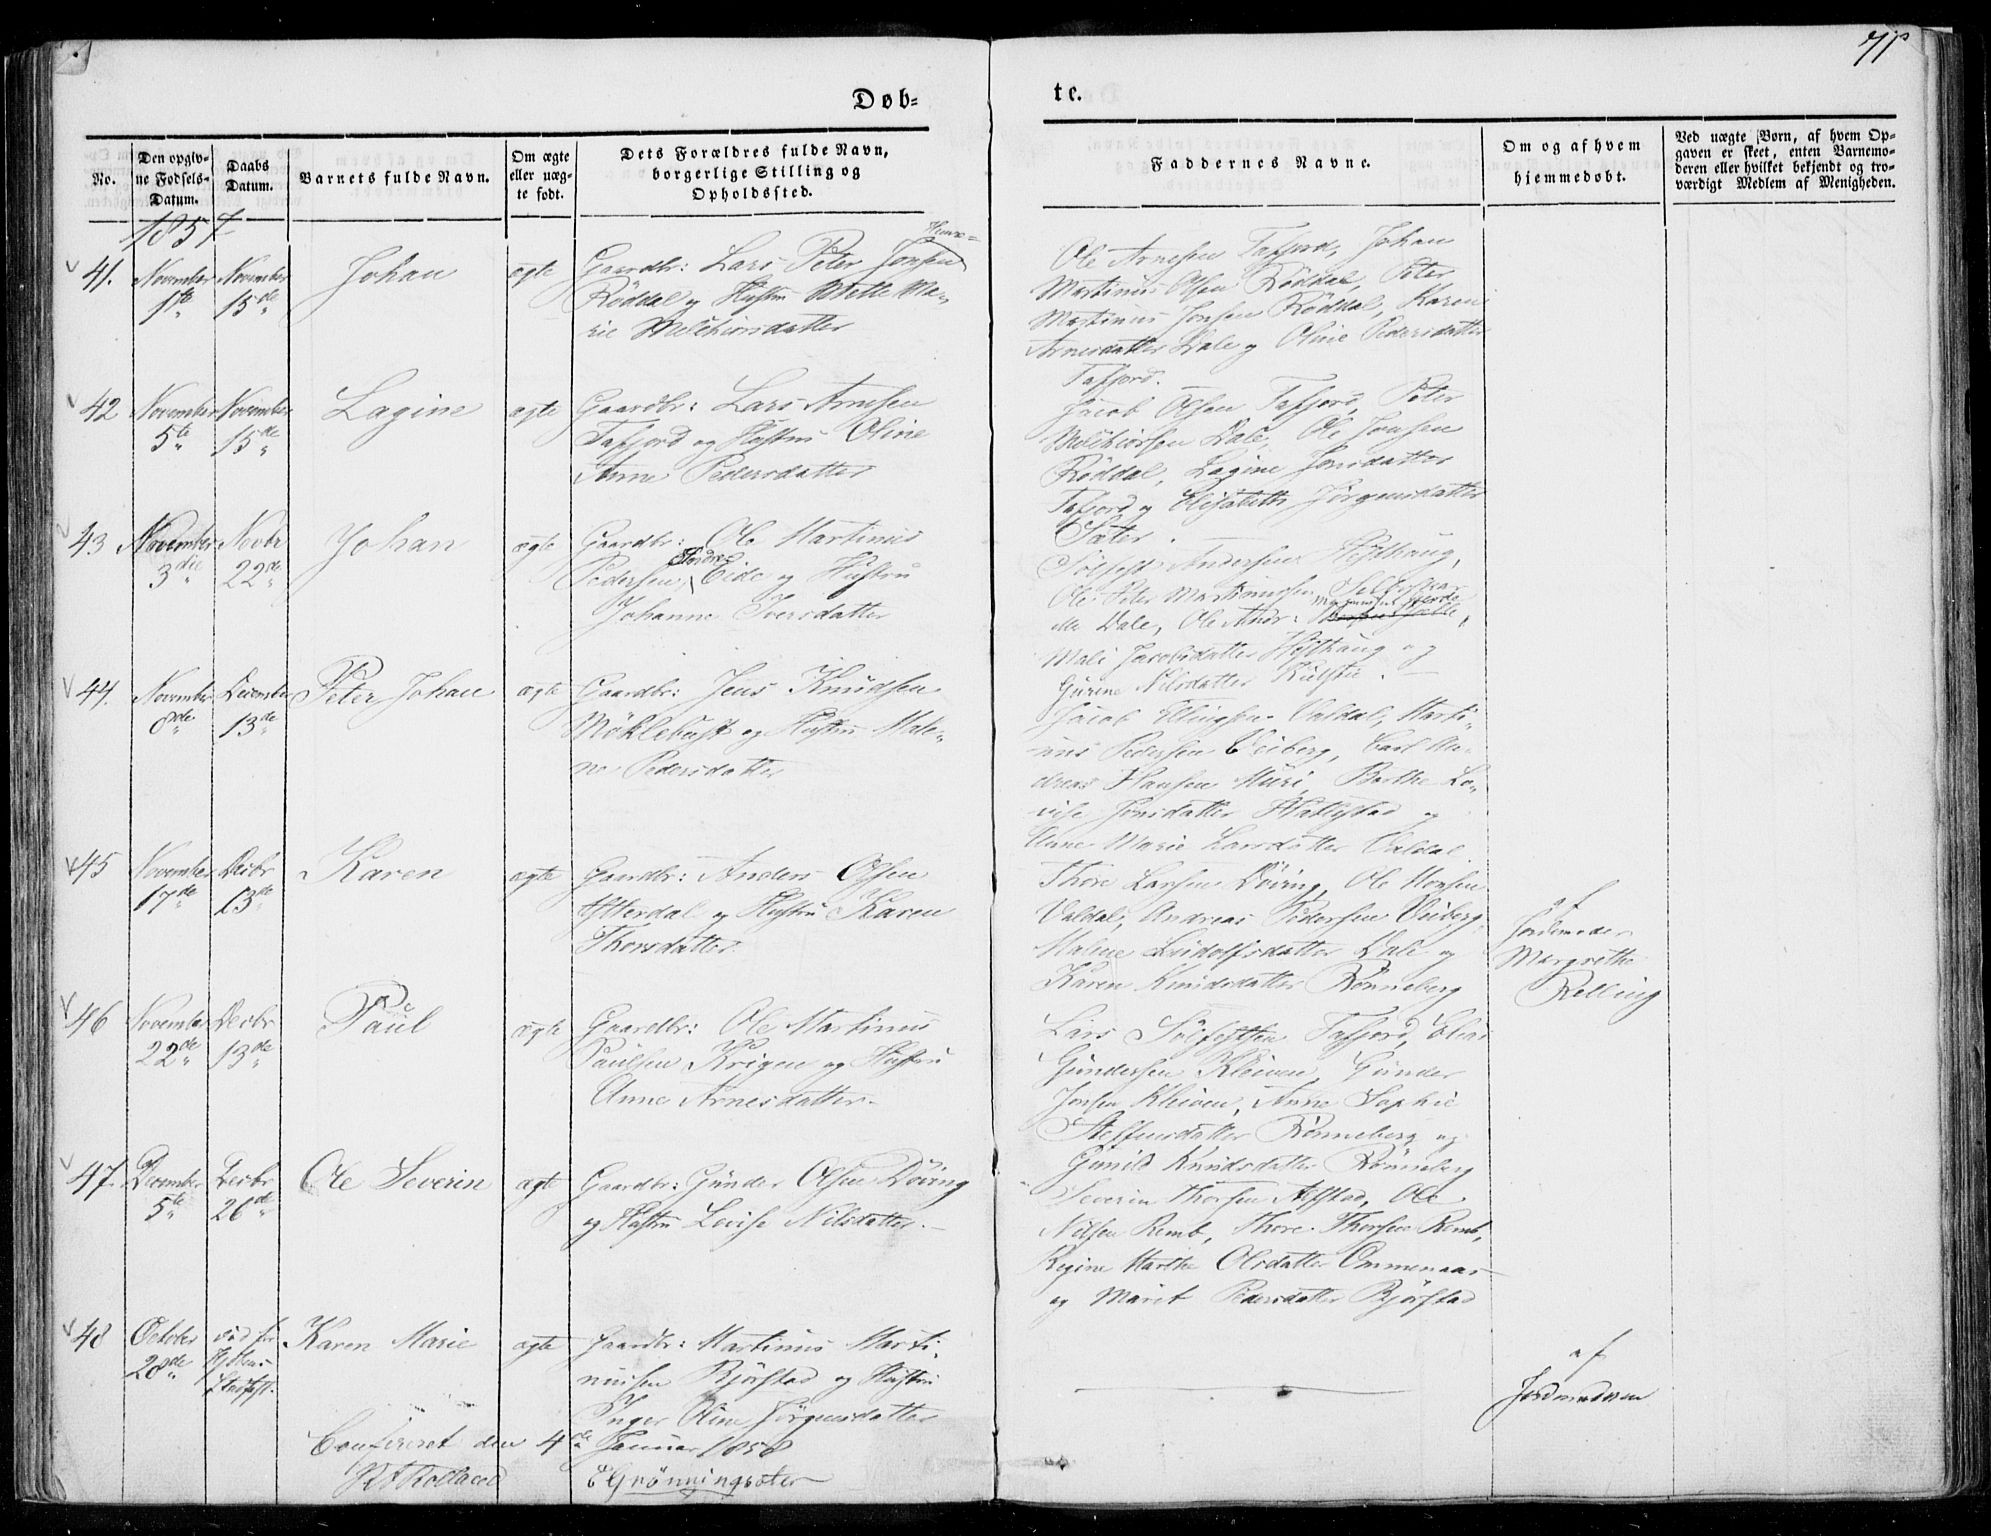 71
Døb-
te.
No.
Den opgiv-
ne Fødsels-
Datum.
Daabs
Datum.
Barnets fulde Navn.
Om ægte
eller uæg-
te født.
Dets Forældres fulde Navn,
borgerlige Stilling og
Opholdssted.
Faddernes Navne.
Om og af hvem
hjemmedøbt.
Ved uægte Børn, af hvem Op-
gaven er skeet, enten Barnemo-
deren eller hvilket bekjendt og tro-
værdigt Medlem af Menigheden.
1857
41.
November
1ste
November
15de
Johan
ægte
Gaardbr: Lars Peter Jonsen
Röddal og Hustru Mette Ma-
rie Melchiorsdatter
Ole Arnesen Tafjord, Johan
Martinus Olsen Röddal, Peter
Martinus Jonsen Röddal, Karen
Arnesdatter Dale og Oline Pedersdatter
Tafjord.
42
November
5te
November
15de
Lagine
ægte
Gaardbr: Lars Arnesen
Tafjord og Hustru Oline
Anne Pedersdatter
Jacob Olsen Tafjord, Peter
Melchiorsen Dale, Ole Jonsen
Röddal, Lagine Jonsdatter
Tafjord og Elisabeth Jörgensdatter
Sæter.
43
November
3die
Novbr
22de
Johan
ægte
Gaardbr: Ole Martinus
Pedersen Eide og Hustru
Johanne Iversdatter
Sölfest Andersen Hösthaug,
Ole Peter Martinussen
Dale, Ole Andr:
Mali Jacobsdatter Hösthaug og
Gurine Nilsdatter
44.
November
8de
December
13de
Peter Johan
ægte
Gaardbr: Jens Knudsen
Möklebust og Hustru Male-
ne Pedersdatter
Jacob Ellingsen Valdal, Marti-
nus Pedersen Veiberg, Carl An-
dreas Hansen Muri, Berthe Lo-
vise Jonsdatter og
Anne Marie Larsdatter Valdal.
45
November
17de
Decbr
13de
Karen
ægte
Gaardbr: Anders Olsen
og Hustru Karen
Thorsdatter.
Thore Larsen Döving, Ole Hansen
Valdal, Andreas Pedersen Veiberg,
Malene Ludolfsdatter Dale og
Karen Knudsdatter Rönneberg
af
Jordemoder
Margrethe
Relling
46
November
22de
Decbr
13de
Paul
ægte
Gaardbr: Ole Martinus
Paulsen Krigen og Hustru
Anne Arnesdatter.
Lars Sölfestsen Tafjord, Elias
Gundersen Kleiven, Gunder
Jonsen Kleiven, Anne Sophie
Steffensdatter Rönneberg og
Gunild Knudsdatter Rönneberg
47.
December
5te
Decbr
26de
Ole Severin
ægte
Gaardbr: Gunder Olsen Döving
og Hustru Lovise Nilsdatter.
Severin Thorsen, Ole
Nilsen Remb, Thore Thorsen Remb,
Regine Marthe Olsdatter Ommenaas
og Marit Pedersdatter Bjørstad
48
October
28de
Karen Marie
ægte
Gaardbr: Martinus Marti-
nussen Bjørstad og Hustru
Inger Oline Jörgensdatter
af
Jordmoderen
Confereret den 4de Januar 1858
E Grönningsæter